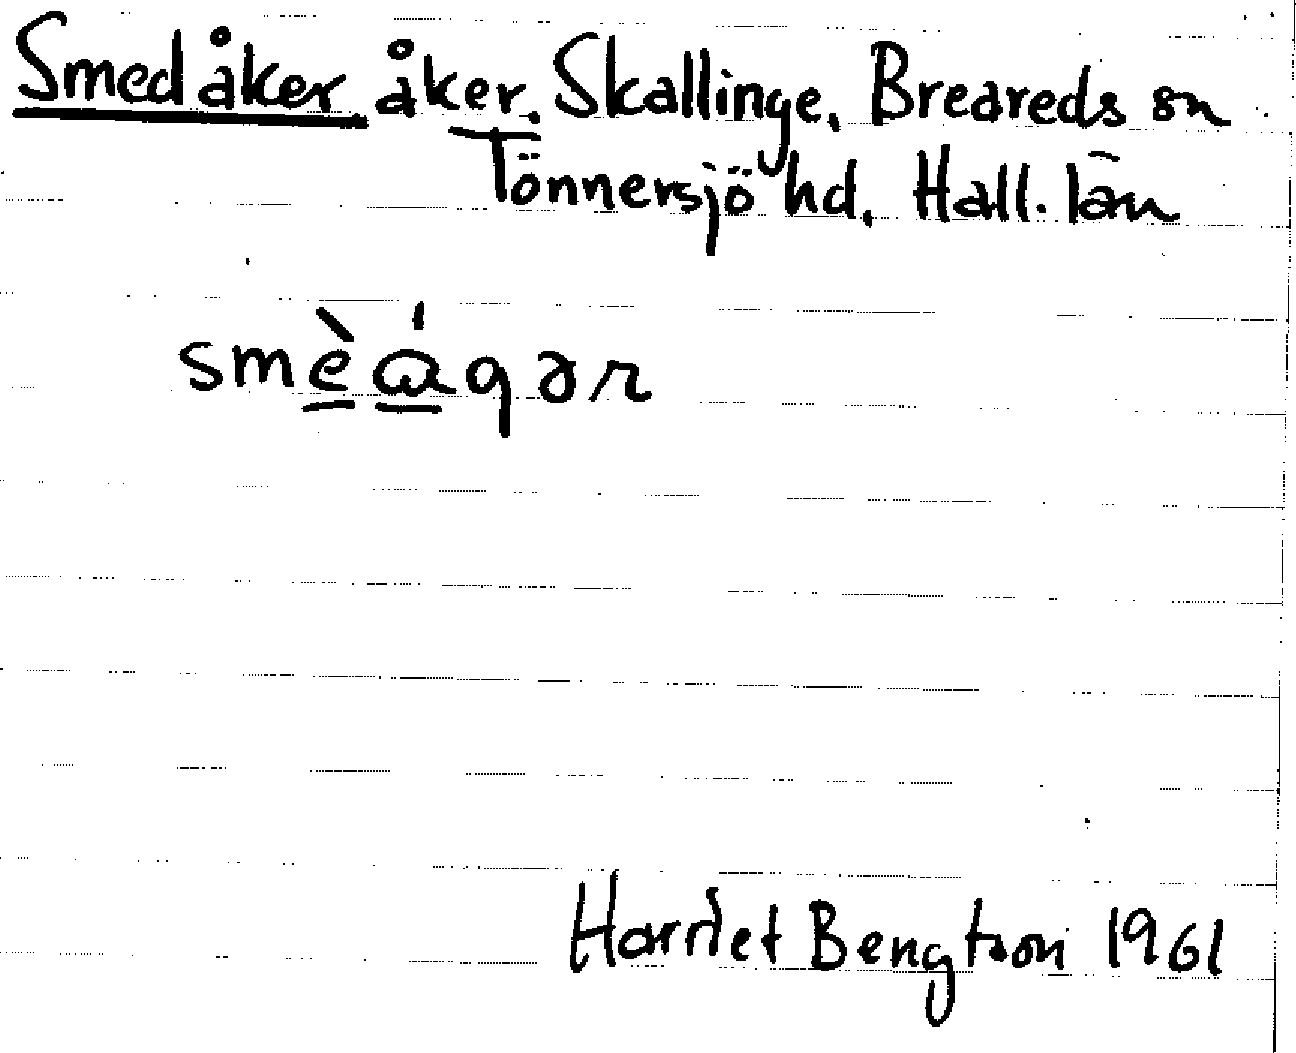 Smedåker åker. Skallinge, Breareds sn
Tönnersjö hd, Hall. län
smèágər
Harriet Bengtson 1961